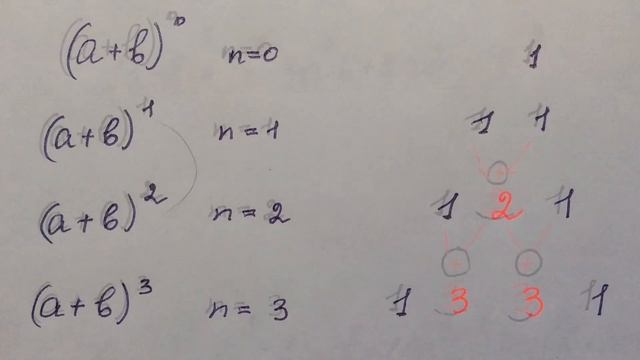 (a+b)⁰ n=0 1
(a+b)¹ n=1 1 1
(a+b)² n=2 1 2 1
(a+b)³ n=3 1 3 3 1